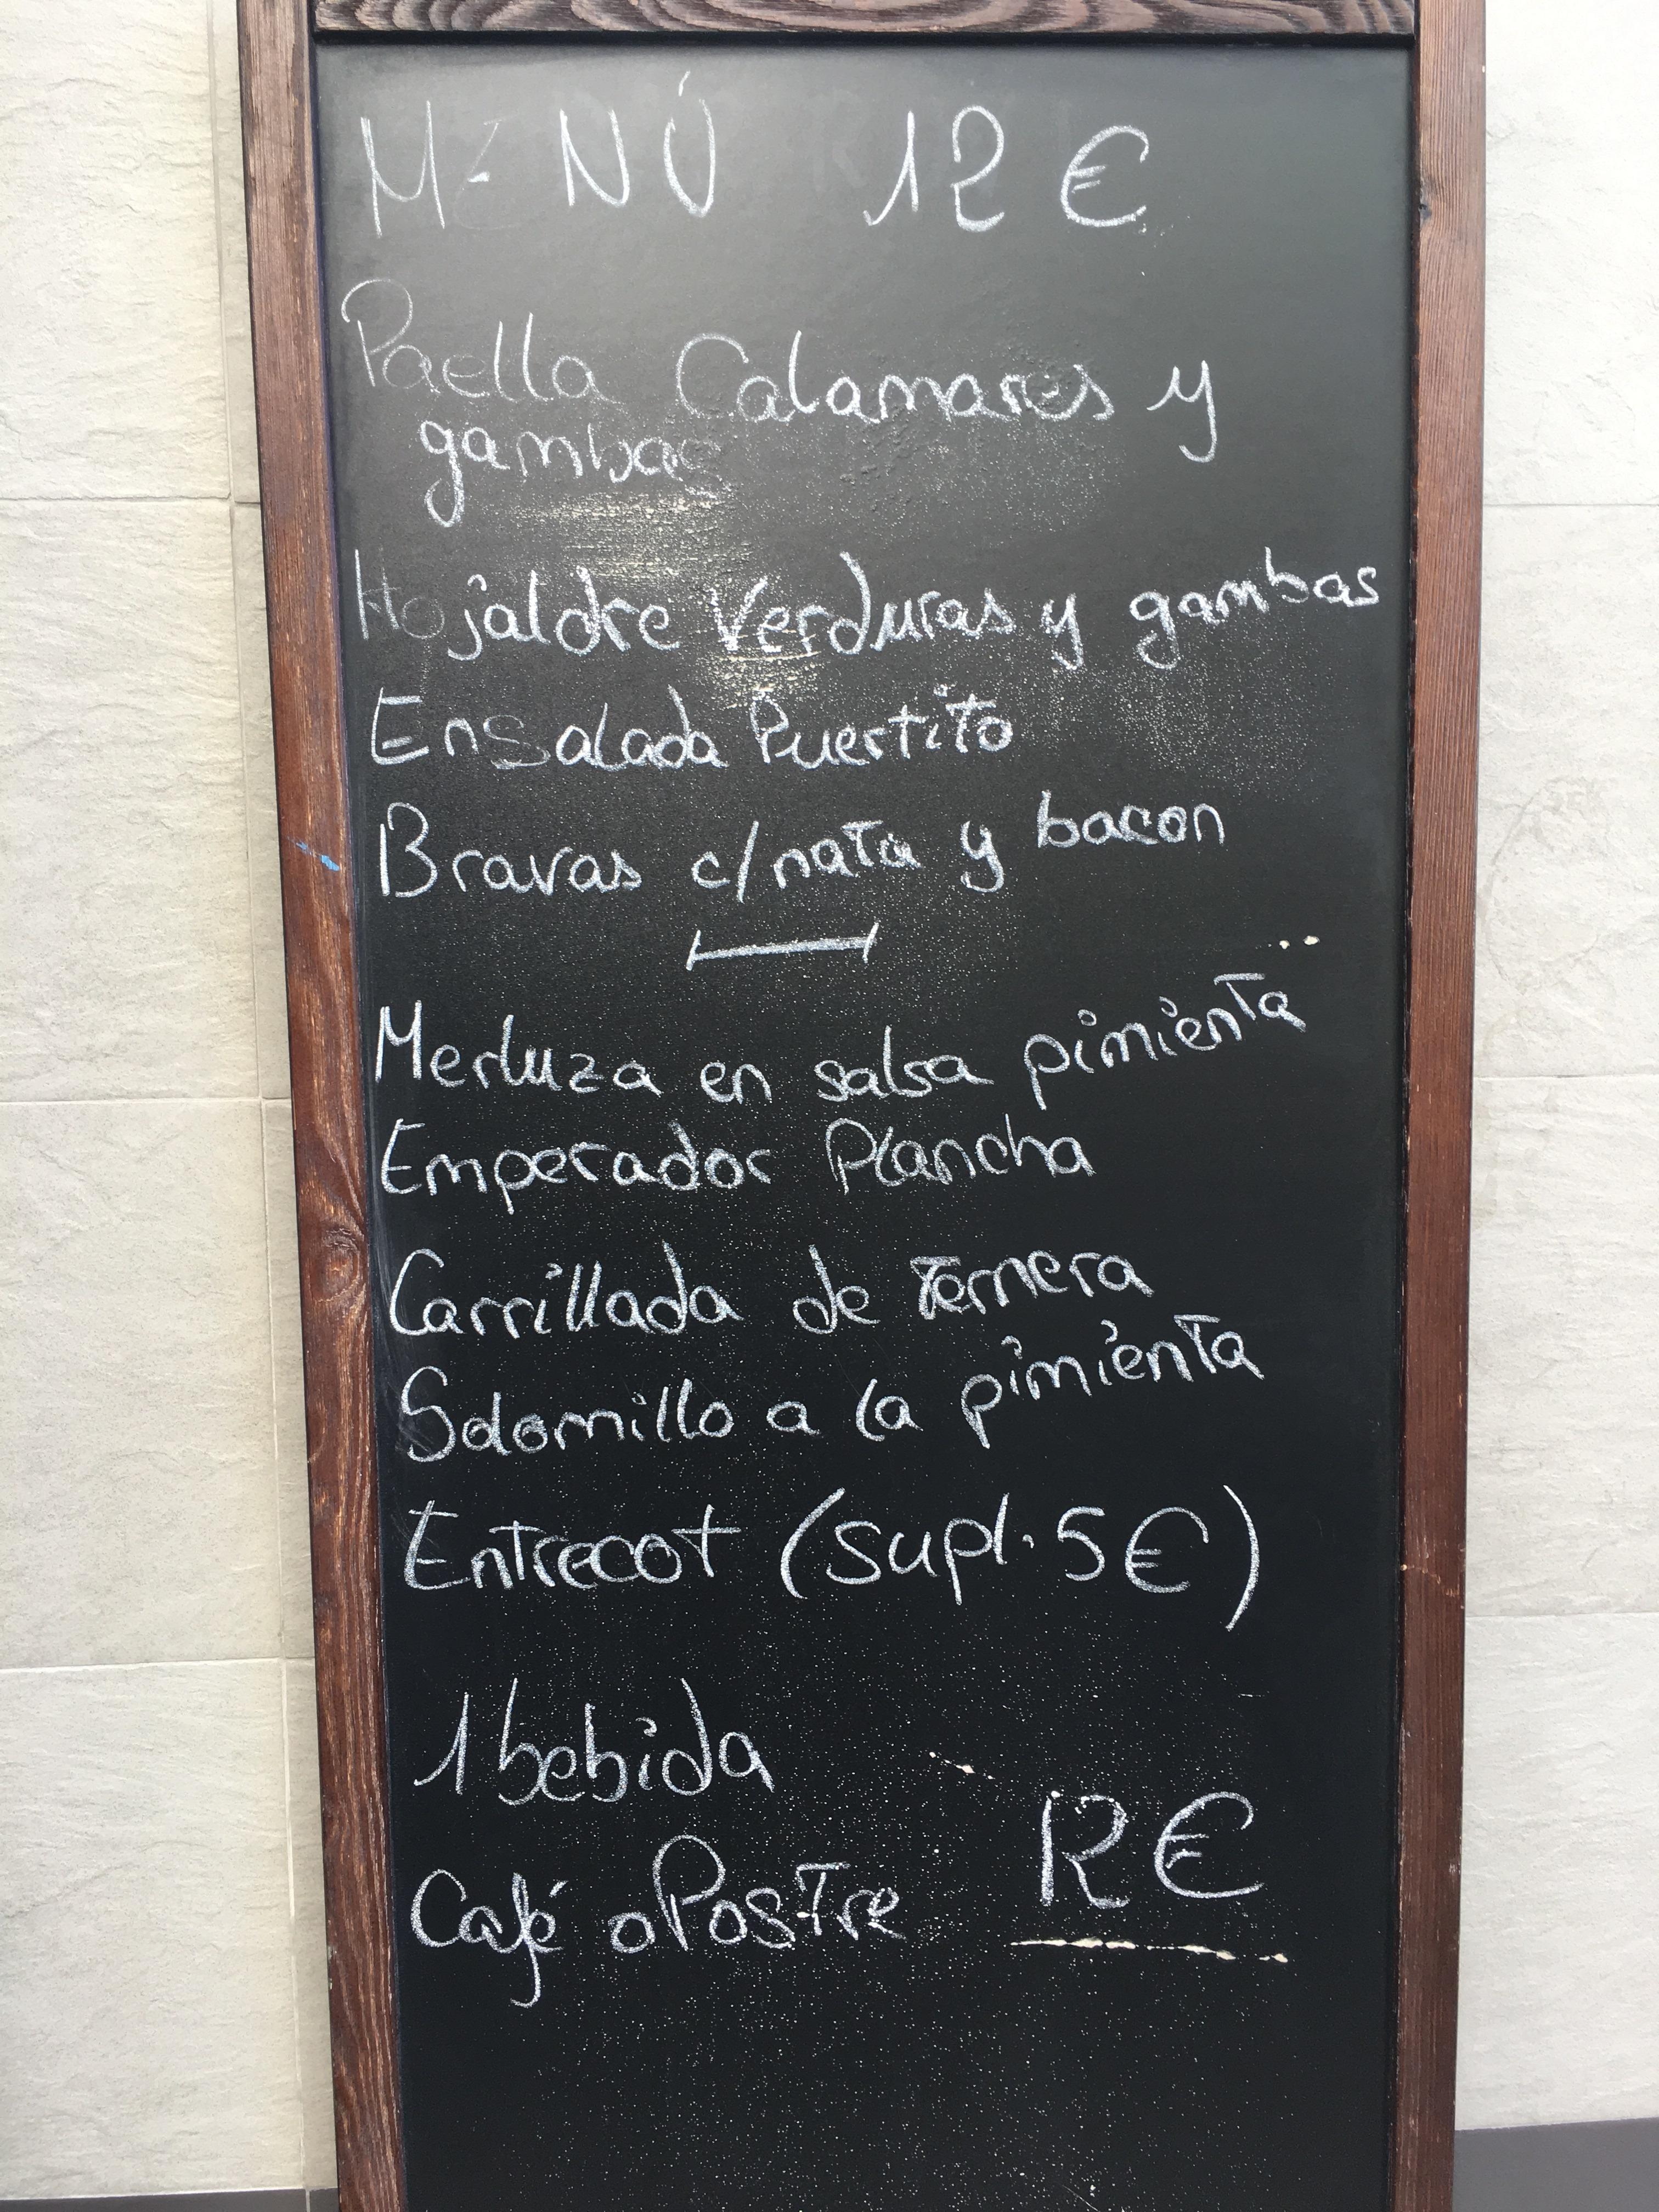 MENÚ 12 €
Paella Calamares y
gambas
Hojaldre Verduras y gambas
Ensalada Puertito
Bravas c/nata y bacon
Merluza en salsa pimienta
Emperador Plancha
Carrillada de ternera
Solomillo a la pimienta
Entrecot (supl. 5€)
1 bebida
Café o Postre 12€